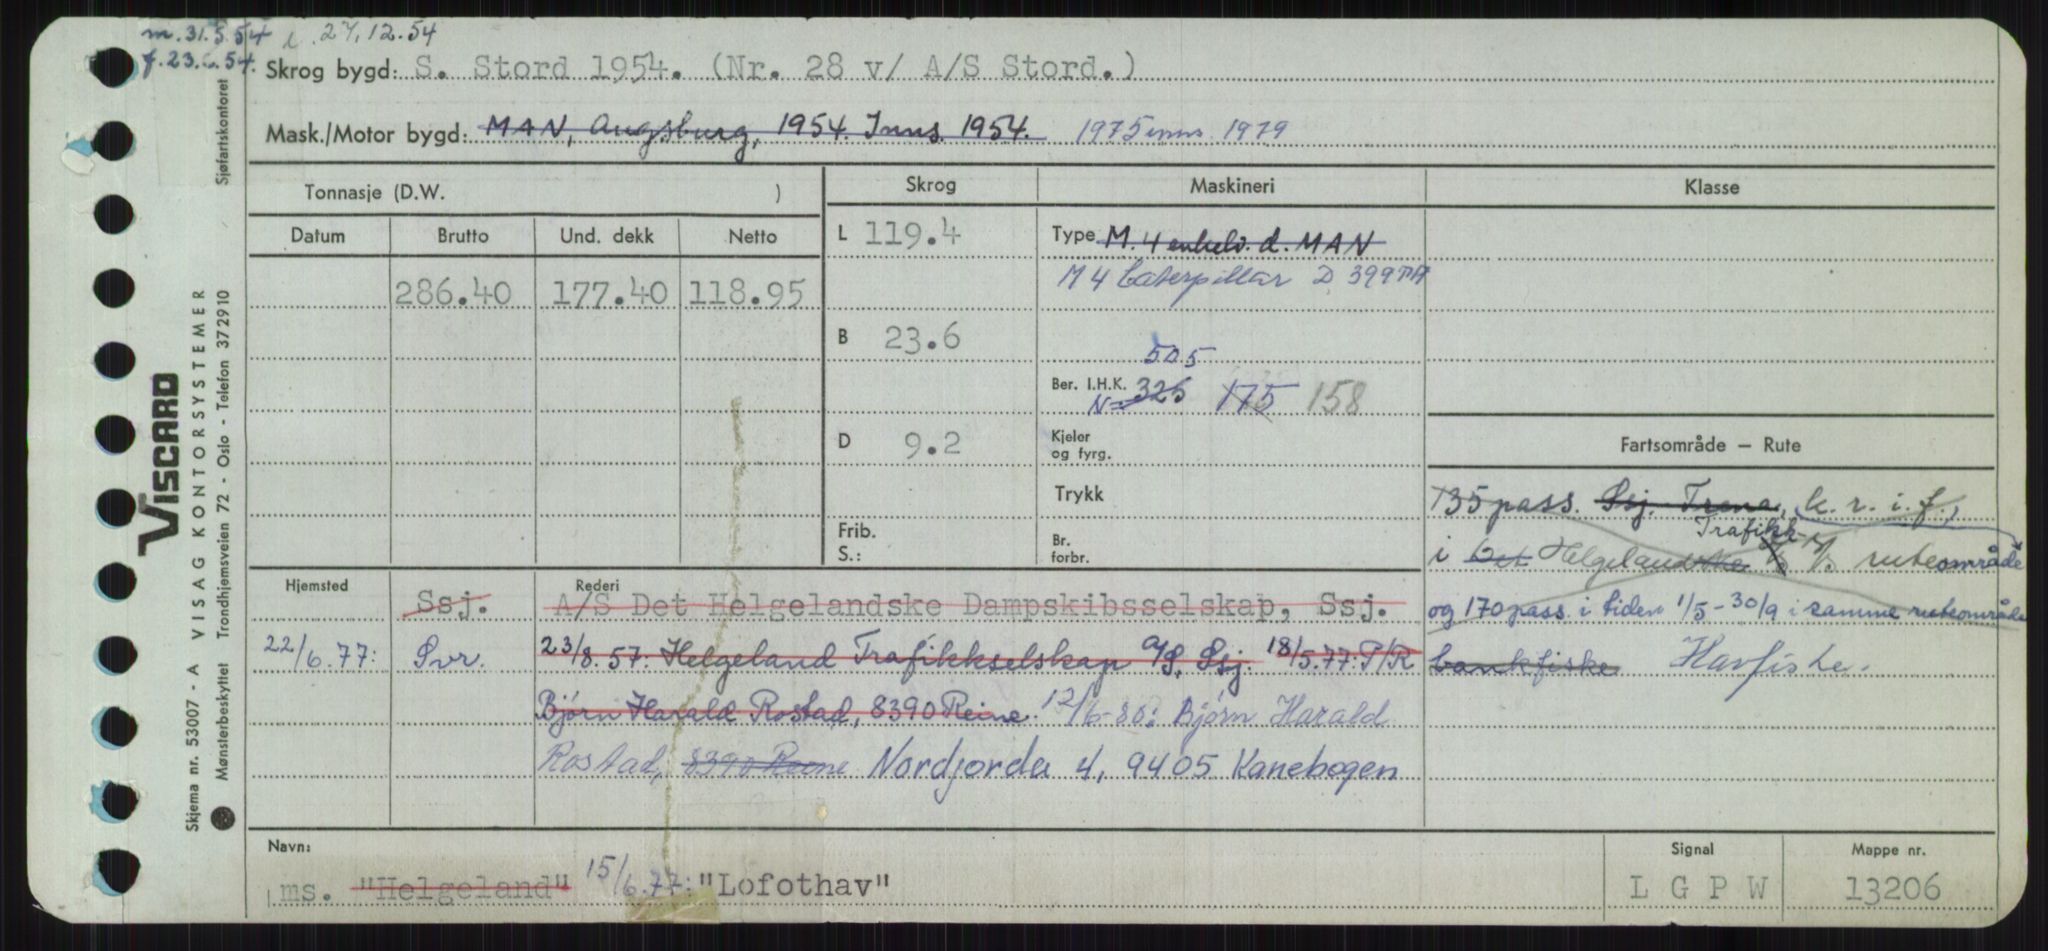 m. 31.5.54 i 27.12.54
f. 23.6.54.
Skrog bygd: S. Stord 1954. (Nr. 28 v/ A/S Stord.)
Mask./Motor bygd: MAN, Augsburg, 1954. Inns. 1954. 1975 inns. 1979
Tonnasje (D.W. )
Skrog
Maskineri
Klasse
Datum Brutto Und. dekk Netto
286.40 177.40 118.95
L 119.4
B 23.6
D 9.2
Frib.
S.:
Type M. 4 enkelv. d. MAN
M 4 Caterpillar D 399TA
505
Ber. I.H.K. 325 175 158
N=
Kjeler
og fyrg.
Trykk
Br.
forbr.
Fartsområde – Rute
135 pass. Ssj. Træna, k. r. i. f.,
Trafikk-
i Det Helgelandske A/S ruteområde
og 170 pass. i tiden 1/5-30/9 i samme ruteområde
bankfiske Havfiske.
Hjemsted Rederi
Ssj. A/S Det Helgelandske Dampskibsselskap, Ssj.
22/6.77: Svr. 23/8.57: Helgeland Trafikkselskap A/S, Ssj. 18/5.77: P/R
Bjørn Harald Rostad, 8390 Reine. 12/6-80: Bjørn Harald
Rostad, 8390 Reine Nordjorda 4, 9405 Kanebogen
Navn:
ms. "Helgeland" 15/6.77: "Lofothav"
Signal
L G P W
Mappe nr.
13206
VISCARD
Skjema nr. 53007 - A VISAG KONTORSYSTEMER Sjøfartskontoret
Mønsterbeskyttet Trondhjemsveien 72 - Oslo - Telefon 372910